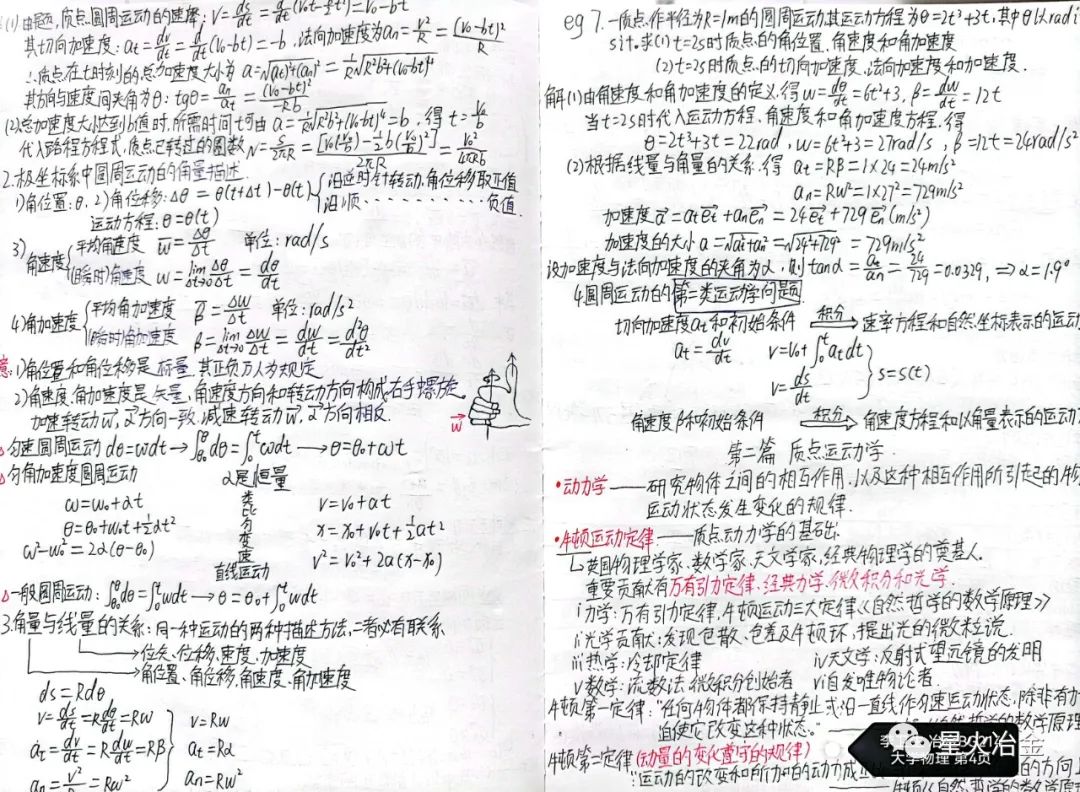 (1)由题,质点圆周运动的速率:v=ds/dt=d/dt(v₀t-½bt²)=v₀-bt
其切向加速度:aₜ=dv/dt=d/dt(v₀-bt)=-b,法向加速度为aₙ=v²/R=(v₀-bt)²/R
∴质点在t时刻的总加速度大小为 a=√(aₜ)²+(aₙ)²=1/R√R²b²+(v₀-bt)⁴
其方向与速度间夹角为θ:tgθ=aₙ/aₜ=(v₀-bt)²/-Rb
(2)总加速度大小达到b值时,所需时间t可由 a=1/R√R²b²+(v₀-bt)⁴=b,得 t=v₀/b
代入路程方程式,质点已转过的圈数 N=s/2πR=[v₀(v₀/b)-½b(v₀/b)²]/2πR=v₀²/4πRb
2.极坐标系中圆周运动的角量描述
1)角位置:θ. 2)角位移:Δθ=θ(t+Δt)-θ(t) {沿逆时针转动,角位移取正值
沿顺··········负值.
运动方程:θ=θ(t)
3)角速度{平均角速度 w̄=Δθ/Δt 单位:rad/s
(瞬时)角速度 w=lim Δt→0 Δθ/Δt=dθ/dt
4)角加速度{平均角加速度 β̄=Δw/Δt 单位:rad/s²
(瞬时)角加速度 β=lim Δt→0 Δw/Δt=dw/dt=d²θ/dt²
意:1)角位置和角位移是标量,其正负乃人为规定
2)角速度.角加速度是矢量,角速度方向和转动方向构成右手螺旋
加速转动w⃗,α⃗方向一致.减速转动w⃗,α⃗方向相反.
w⃗
△匀速圆周运动 dθ=wdt→∫θ₀^θ dθ=∫₀^t wdt→θ=θ₀+wt
△匀角加速度圆周运动 α是恒量
w=w₀+αt v=v₀+at
θ=θ₀+w₀t+½αt² x=x₀+v₀t+½at²
w²-w₀²=2α(θ-θ₀) v²=v₀²+2a(x-x₀)
类比匀变速直线运动
△一般圆周运动:∫θ₀^θ dθ=∫₀^t wdt→θ=θ₀+∫₀^t wdt
3.角量与线量的关系:同一种运动的两种描述方法,二者必有联系
→位矢、位移、速度、加速度
→角位置、角位移、角速度、角加速度
ds=Rdθ
v=ds/dt=Rdθ/dt=Rw v=Rw
aₜ=dv/dt=Rdw/dt=Rβ aₜ=Rα
aₙ=v²/R=Rw² aₙ=Rw²
eg 7.一质点作半径为R=1m的圆周运动,其运动方程为θ=2t³+3t.其中θ以radi
sit.求(1)t=2s时质点的角位置、角速度和角加速度
(2)t=2s时质点的切向加速度、法向加速度和加速度.
解(1)由角速度和角加速度的定义,得w=dθ/dt=6t²+3,β=dw/dt=12t
当t=2s时代入运动方程、角速度和角加速度方程,得
θ=2t³+3t=22rad,w=6t²+3=27rad/s,β=12t=24rad/s²
(2)根据线量与角量的关系.得 aₜ=Rβ=1×24=24m/s²
aₙ=Rw²=1×27²=729m/s²
加速度a⃗=aₜe⃗ₜ+aₙe⃗ₙ=24e⃗ₜ+729e⃗ₙ(m/s²)
加速度的大小a=√aₜ²+aₙ²=√24²+729²=729m/s²
设加速度与法向加速度的夹角为α,则tanα=aₜ/aₙ=24/729=0.0329,⇒α=1.9°
4.圆周运动的第二类运动学问题
切向加速度aₜ和初始条件 积分→ 速率方程和自然坐标表示的运动
aₜ=dv/dt v=v₀+∫₀^t aₜdt
v=ds/dt }s=s(t)
角速度β和初始条件 积分→ 角速度方程和以角量表示的运动
第二篇 质点运动学
•动力学——研究物体之间的相互作用,以及这种相互作用所引起的物
运动状态发生变化的规律.
•牛顿运动定律——质点动力学的基础
↳英国物理学家、数学家、天文学家,经典物理学的奠基人.
重要贡献有万有引力定律、经典力学、微积分和光学.
ⅰ力学:万有引力定律,牛顿运动三大定律《自然哲学的数学原理》
ⅱ光学贡献:发现色散、色差及牛顿环,提出光的微粒说.
ⅲ热学:冷却定律 ⅳ天文学:反射式望远镜的发明
ⅴ数学:流数法,微积分创始者 ⅵ自发唯物论者.
牛顿第一定律:"任何物体都保持静止或沿一直线作匀速运动状态,除非有力
迫使它改变这种状态."
牛顿第二定律(动量的变化遵守的规律)
"运动的改变和所加的动力成正
星火冶金
大学物理 第4页